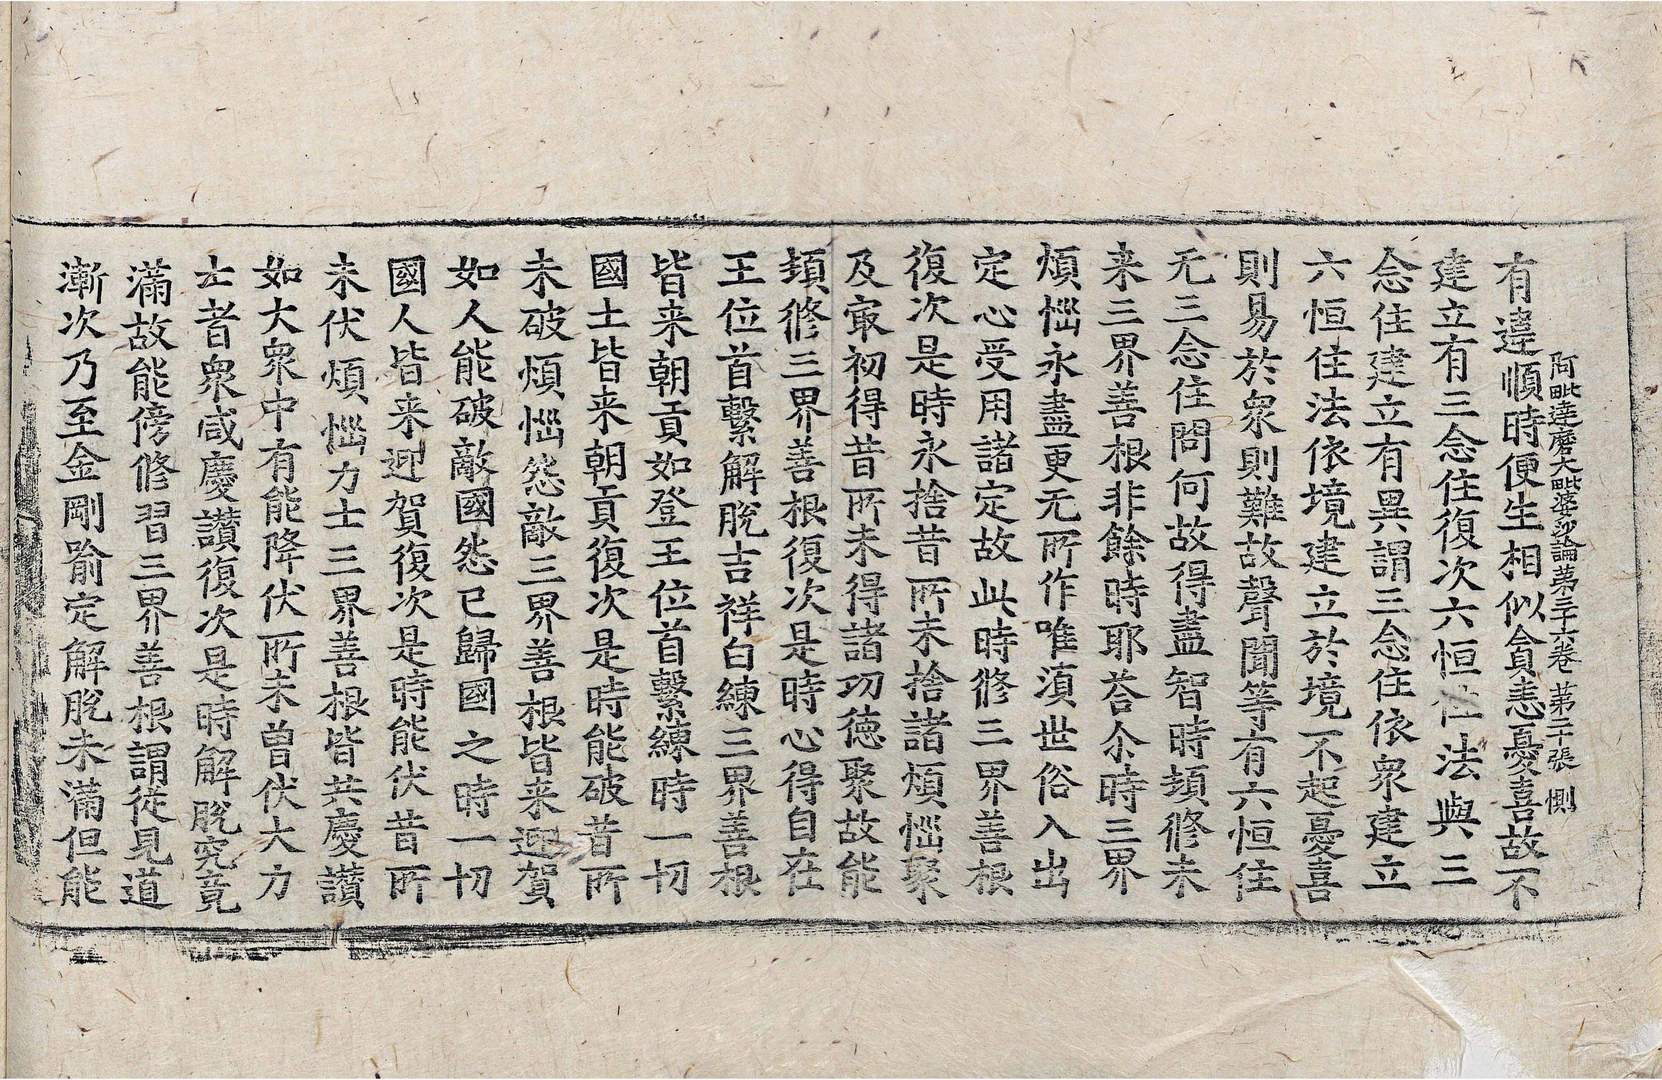 阿毗達磨大毗婆沙論第三十六卷 第二十張 惻
有違順時便生相似貪恚憂喜故不
建立有三念住復次六恒住法與三
念住建立有異謂三念住依衆建立
六恒住法依境建立於境不起憂喜
則易於衆則難故聲聞等有六恒住
无三念住問何故得盡智時頓修未
来三界善根非餘時耶荅尒時三界
煩惱永盡更无所作唯湏世俗入出
定心受用諸定故此時修三界善根
復次是時永捨昔所未捨諸煩惱聚
及㝡初得昔所未得諸功德聚故能
頓修三界善根復次是時心得自在
王位首繫解脫吉祥白練三界善根
皆来朝貢如登王位首繫練時一切
國土皆来朝貢復次是時能破昔所
未破煩惱怨敵三界善根皆来迎賀
如人能破敵國怨已歸國之時一切
國人皆来迎賀復次是時能伏昔所
未伏煩惱力士三界善根皆共慶讃
如大衆中有能降伏所未曾伏大力
士者衆咸慶讃復次是時解脫究竟
滿故能傍修習三界善根謂從見道
漸次乃至金剛喻定解脫未滿但能